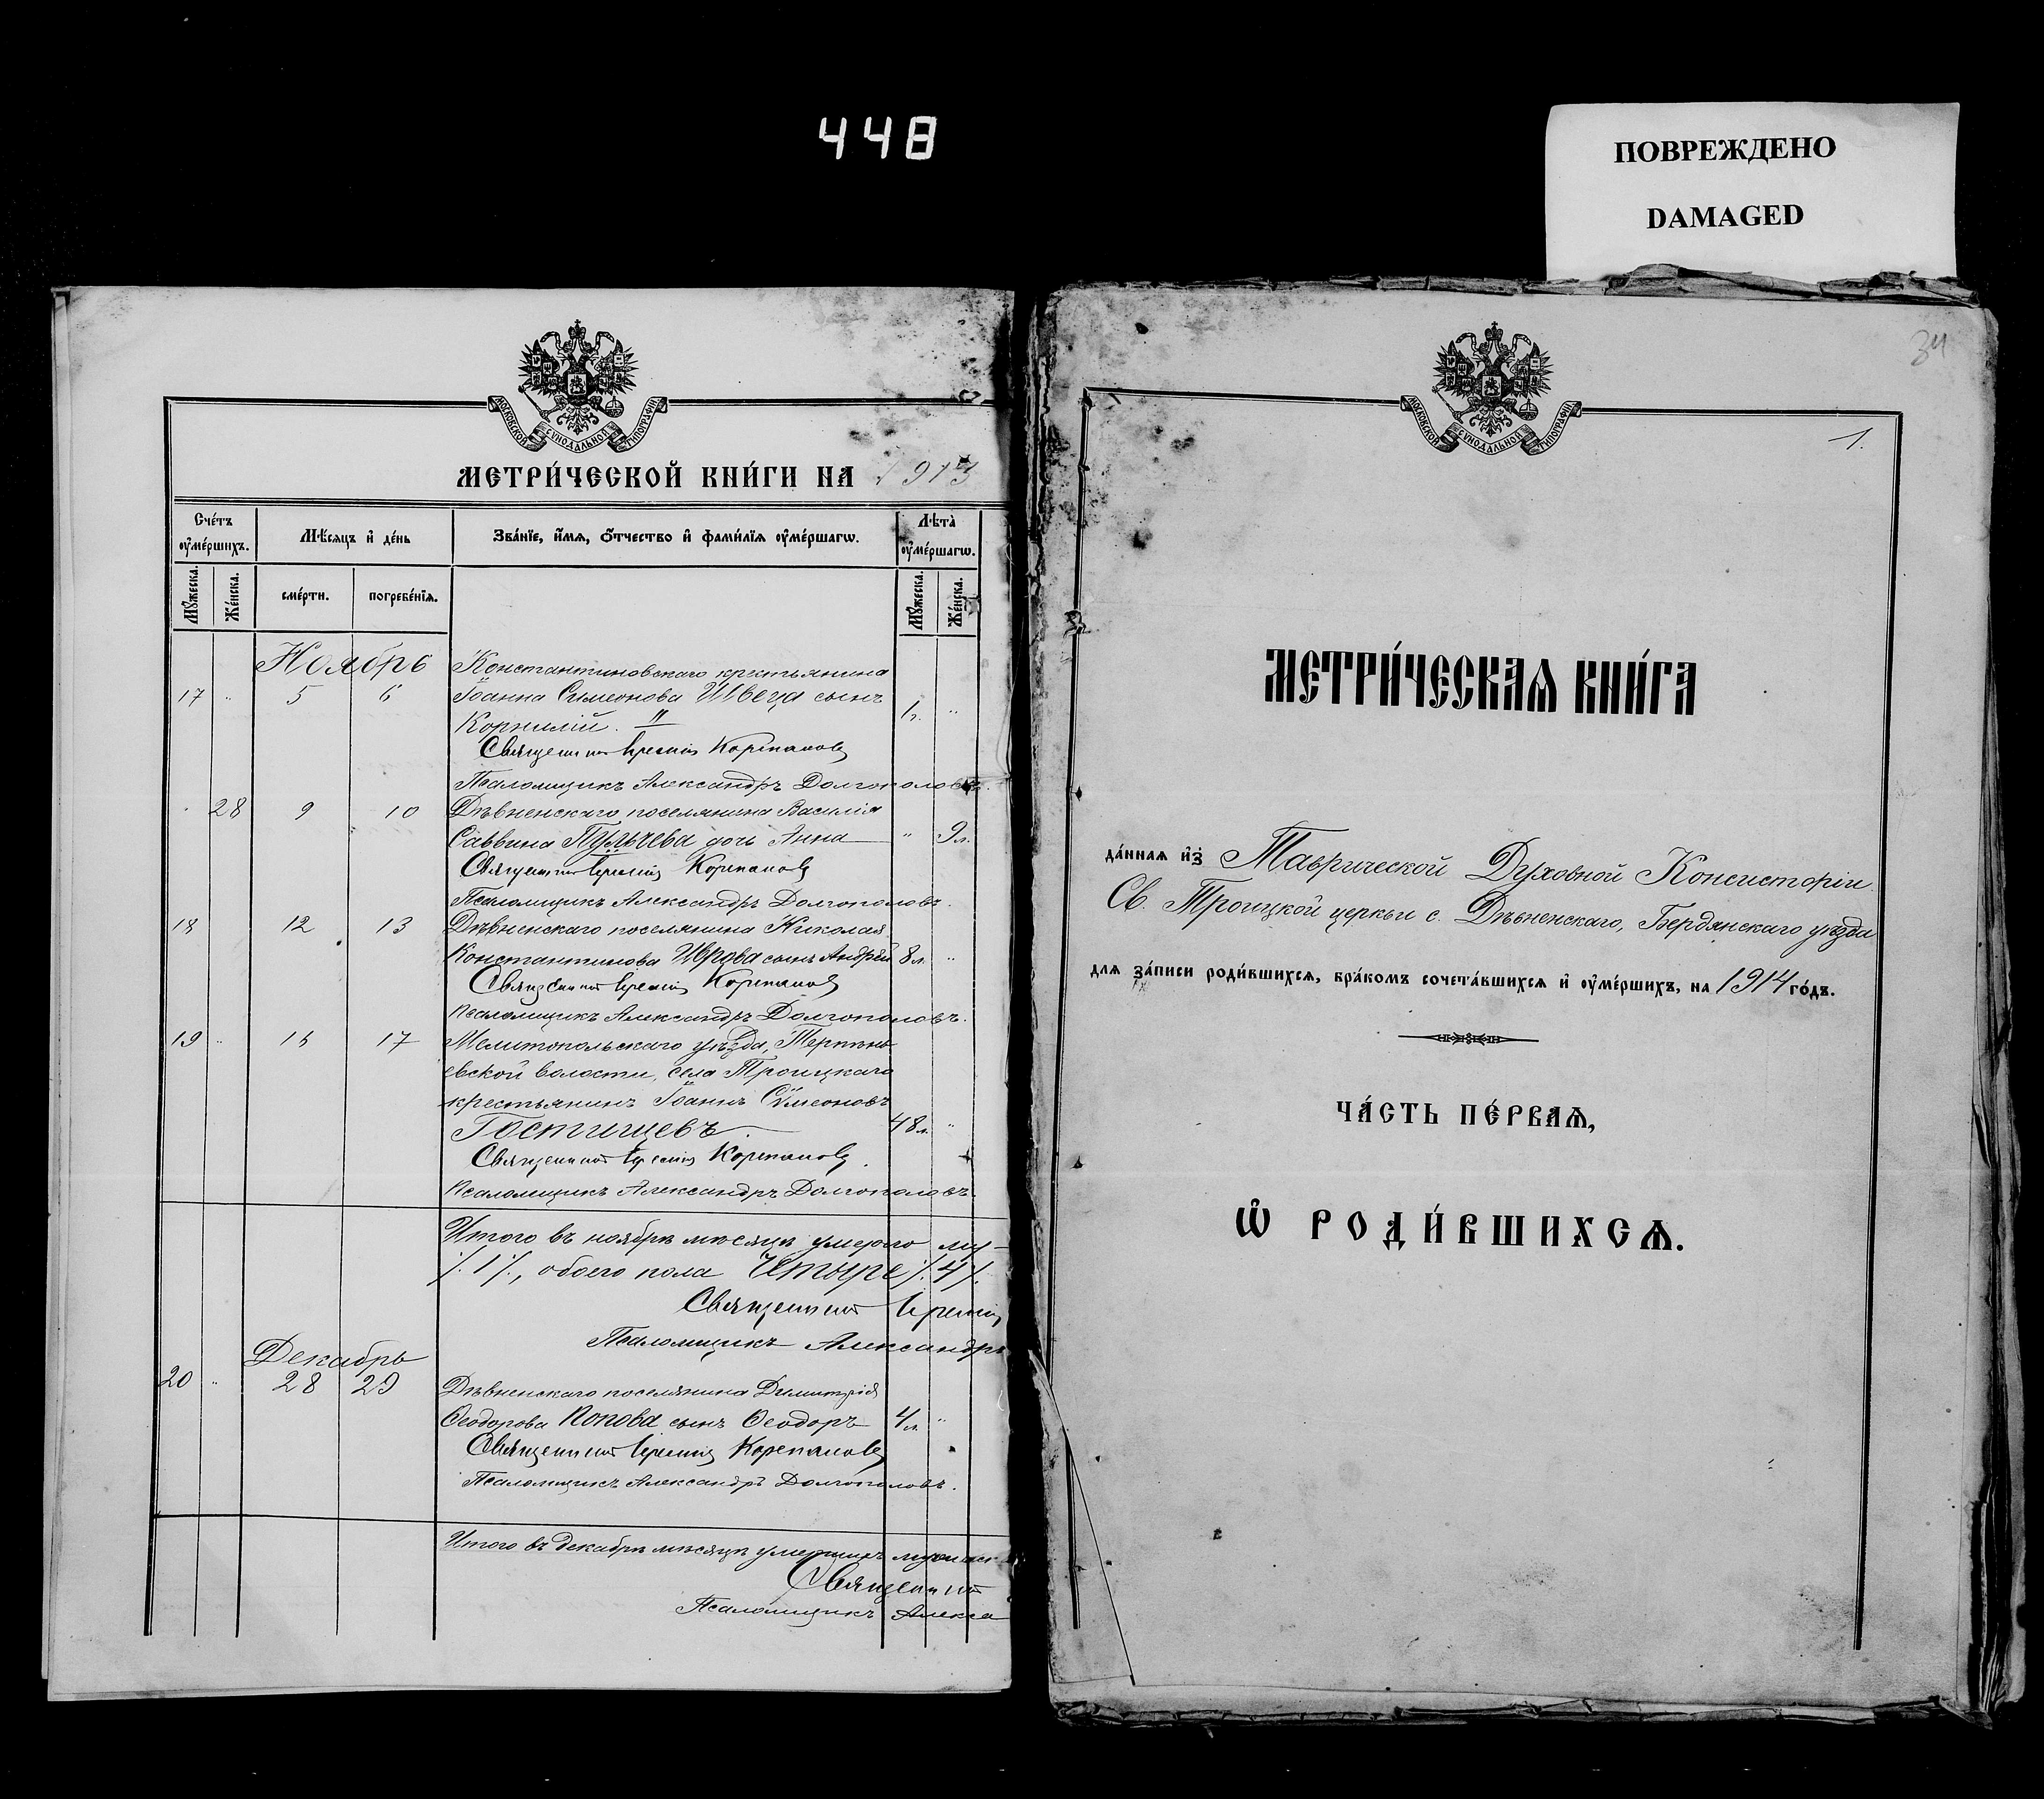 448
ПОВРЕЖДЕНО
DAMAGED
МОСКОВСКОЙ СУНОДАЛЬНОЙ ТИПОГРАФІИ
МЕТРИ́ЧЕСКОЙ КНИ́ГИ НА 1913
Сче́тъ оу҆ме́ршихъ.
Мѣ́сяцъ и҆ де́нь
Зва́нїе, и҆́мя, ѻ҆́тчество и҆ фами́лїя оу҆ме́ршагѡ.
Лѣта̀ оу҆ме́ршагѡ.
Мꙋ́жеска.
Же́нска.
сме́рти.
погребе́нїѧ.
Мꙋ́жеска.
Же́нска.
Ноябрь
Константиновскаго крестьянина
17 " 5 6 Іоанна Симеонова Швеца сынъ
Корнилій. 1г. "
Священникъ Корепановъ
Псаломщикъ Александръ Долгополовъ.
" 28 9 10 Дѣвненскаго поселянина Василія
Саввина Пульчева дочь Анна " 9л.
Священникъ Корепановъ
Псаломщикъ Александръ Долгополовъ.
18 12 13 Дѣвненскаго поселянина Николая
Константинова сынъ Андрей 8л. "
Священникъ Корепановъ
Псаломщикъ Александръ Долгополовъ.
19 " 15 17 Мелитопольскаго уѣзда, Терпѣнь-
евской волости, села Троицкаго
крестьянинъ Іоаннъ Сѵмеоновъ
Гостищевъ. 48л. "
Священникъ Корепановъ.
Псаломщикъ Александръ Долгополовъ.
Итого въ ноябрѣ мѣсяцѣ умерло му-
/. 1 /., обоего пола четыре /. 4 /.
Священникъ
Псаломщикъ Александръ
Декабрь
20 " 28 29 Дѣвненскаго поселянина Димитрія
Ѳеодорова Попова сынъ Ѳеодоръ 4л. "
Священникъ Корепановъ
Псаломщикъ Александръ Долгополовъ.
Итого въ декабрѣ мѣсяцѣ
Священникъ
Псаломщикъ Алекса
34
МОСКОВСКОЙ СУНОДАЛЬНОЙ ТИПОГРАФІИ
1.
МЕТРИ́ЧЕСКАѦ КНИ́ГА
да́ннаѧ и҆з̾ Таврической Духовной Консисторіи
Св. Троицкой церкви с. Дѣвненскаго, Бердянскаго уѣзда
для за́писи роди́вшихсѧ, бра́комъ сочета́вшихсѧ и҆ оу҆ме́ршихъ, на 1914 го́дъ.
ЧА́СТЬ ПЕ́РВАѦ,
Ѽ РОДИ́ВШИХСѦ.